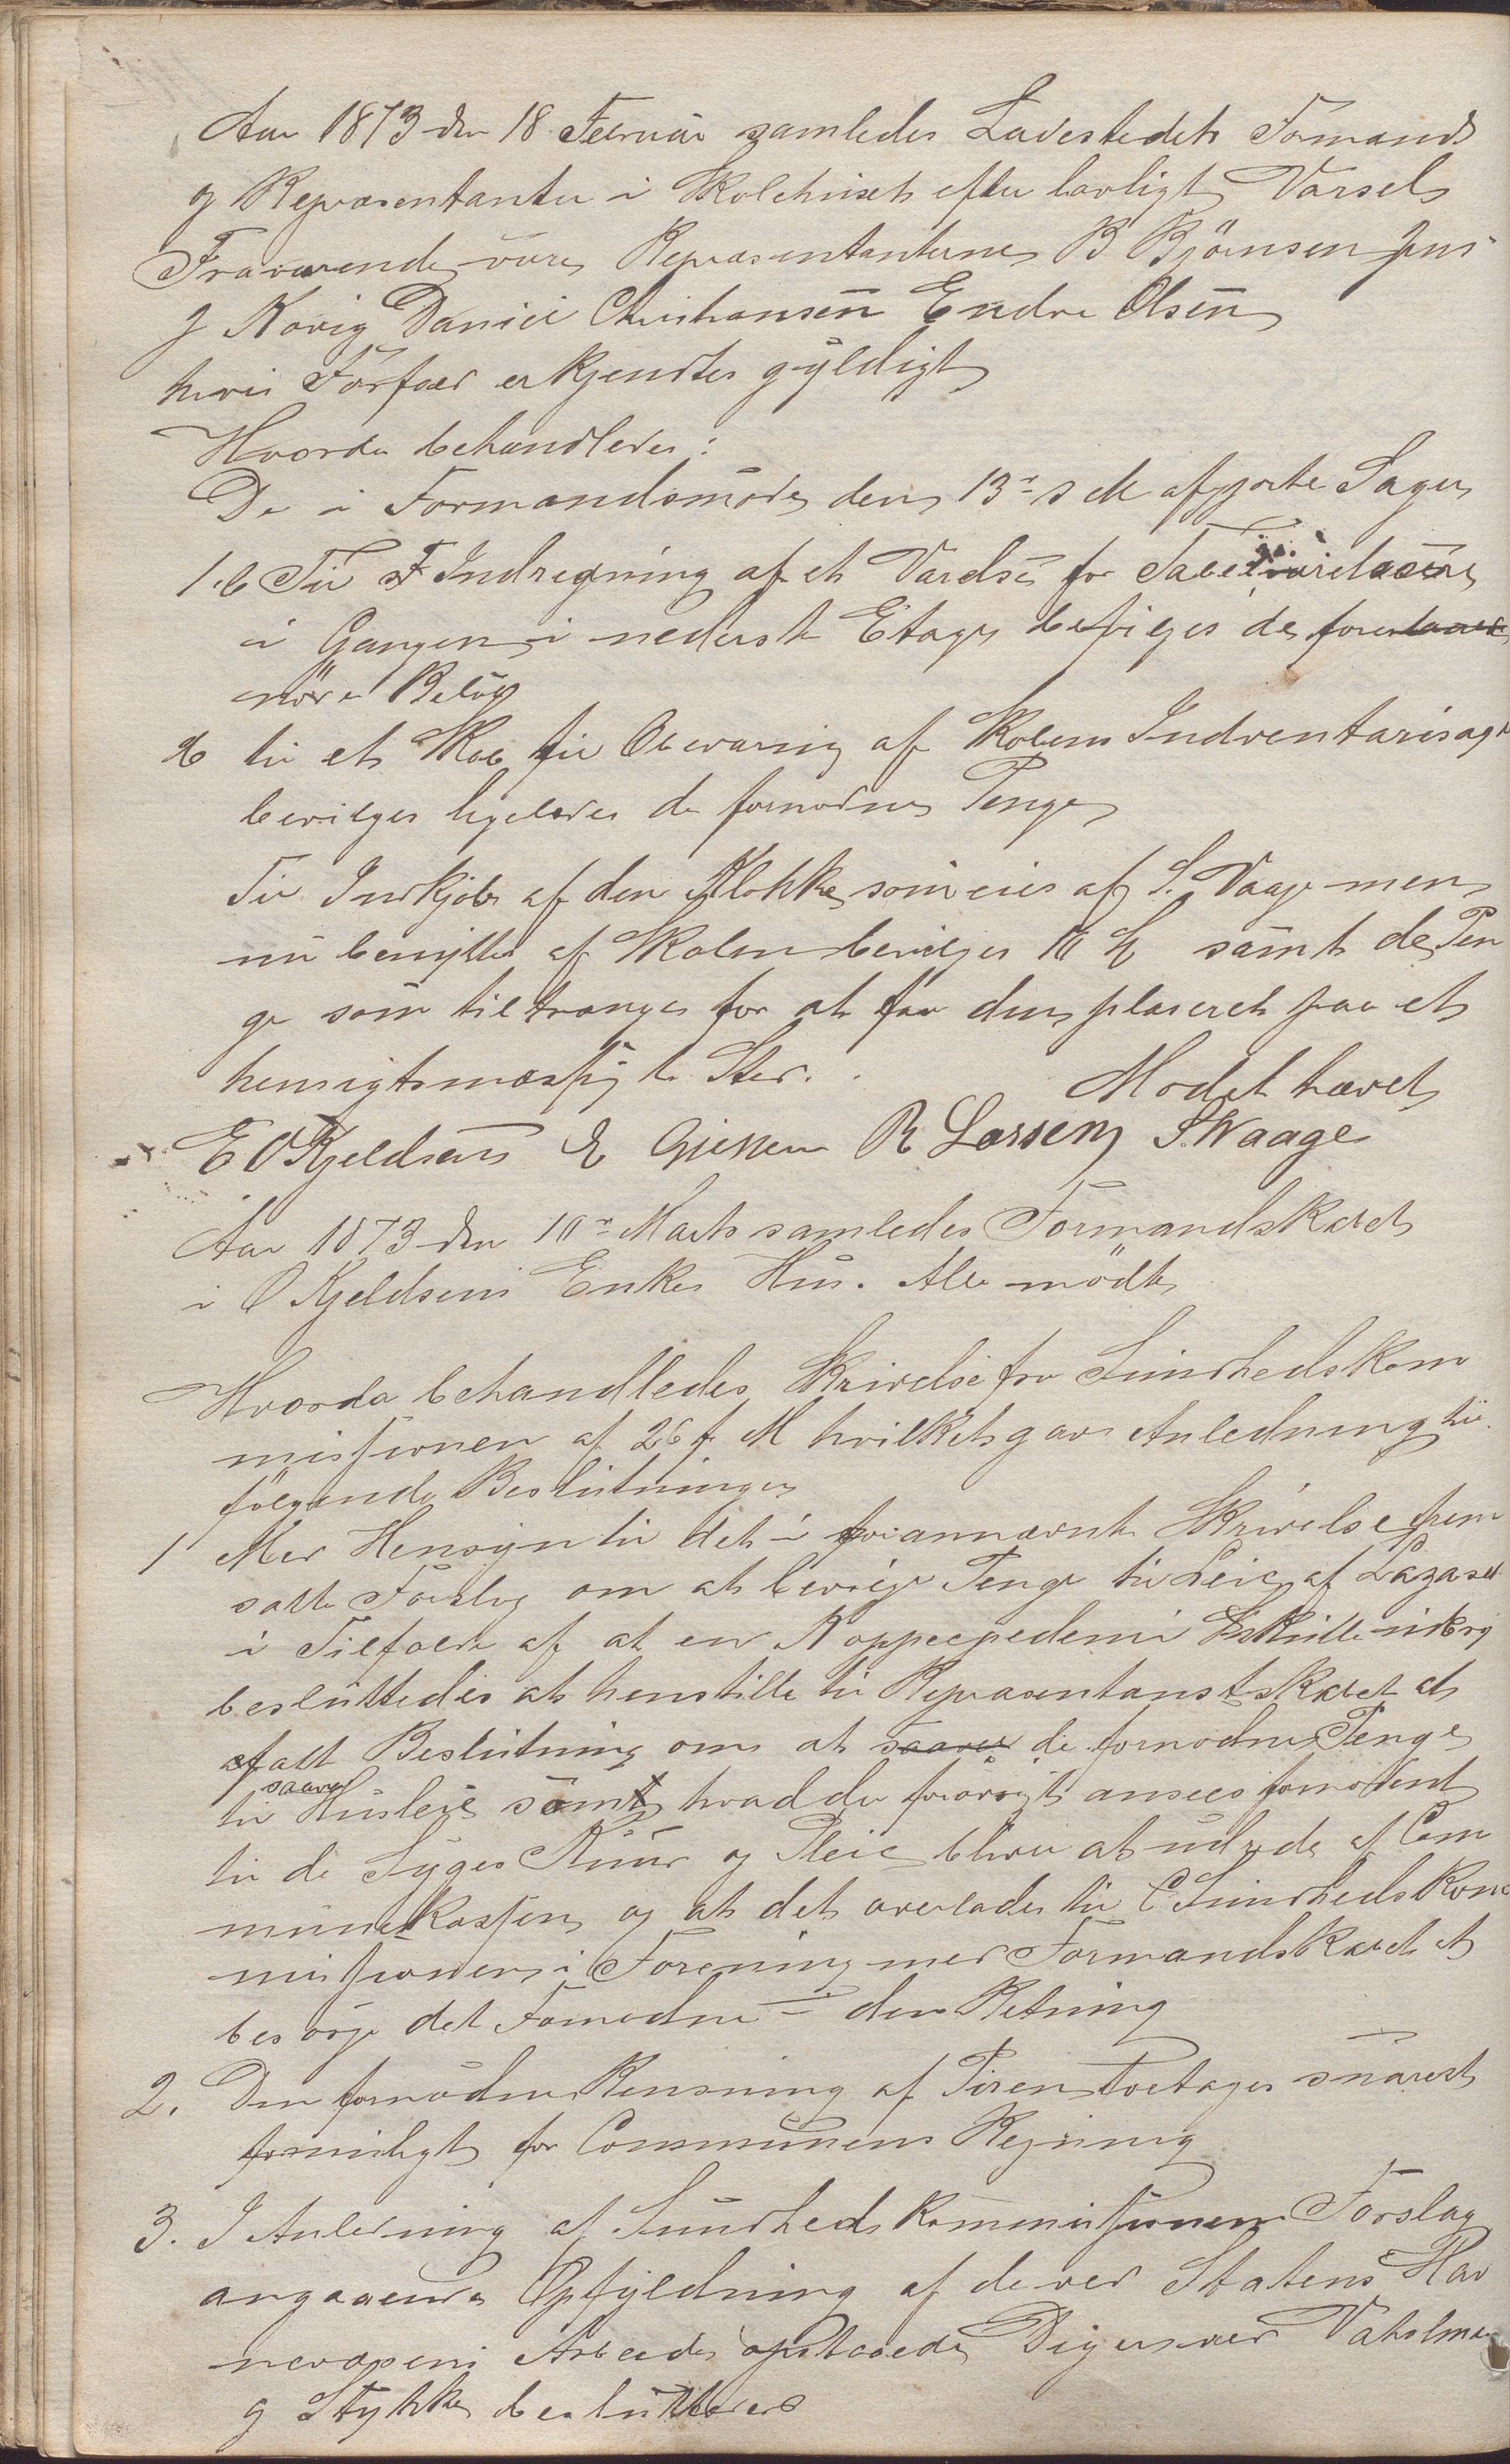 Aar 1873 den 18 Februar samledes Ladestedets Formænd
og Repræsentanter i Skolehuset efter lovligt Varsel
Fraværende vare Repræsentanterne B Bjørnsen Jens
J Norvig Daniel Christiansen Endre Olsen
hvis Forfald erkjendtes gyldigt
Hvorda behandledes:
De i Formandsmøde den 13de d M afgjorte Sager
1. b Til Indregning af et Værelse for
i Gangen i nederste Etage bevilges de for
nødne Beløb
2 til et Skab til Opbevaring af Skolens Indventariesager
bevilges ligeledes de fornødne Penge
Til Indkjøb af den Klokke som eies af S. Vaage men
nu benyttes af Skolen bevilges 10 S samt de Pen
ge som tiltrænges for at faa den plaseret paa et
hensigtsmæssigt Sted.
Mødet hævet
E O Kjeldsen E Gjessen R Larsen S. Waage
Aar 1873 den 10de Marts samledes Formandskabet
i O Kjeldsens Enkes Hus. Alle mødte
Hvorda behandledes Skrivelse fra Sundhedskom
missionen af 26 f M hvilket gav Anledning til
følgende Beslutninger
1 Med Hensyn til det i forannævnte Skrivelse frem
satte Forslag om at bevilge Penge til Leie af Lazaret
i Tilfælde af at en Koppeepedemi skulde udbry
besluttedes at henstille til Repræsentantskabet at
fatte Beslutning om at saavel de fornødne Penge
saavel
til Husleie samt hvad der forøvrigt ansees fornødent
til de Syges Kuur og Pleie bliver at udrede af Com
munekassen og at det overlades til Sundhedskom
missionen i Forening med Formandskabet at
besørge det Fornødne i den Retning
2. Den fornødne Rensning af foretages snarest
muligt for Communens Regning
3. I Anledning af Sundhedskommissionens Forslag
angaaende Opfyldning af de ved Statens Hav
nevæsens Arbeide opstaaede Diger ved
og Stykke besluttedes